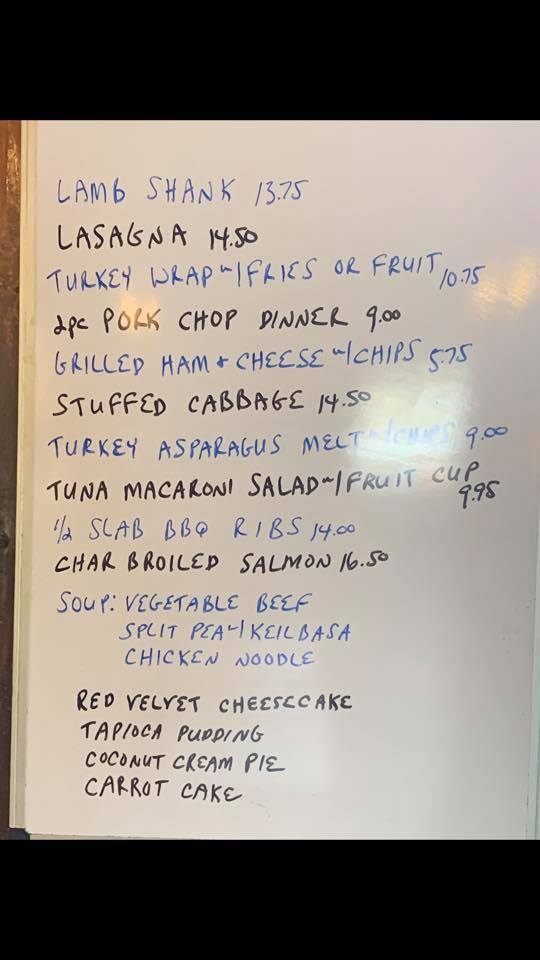 LAMB SHANK 13.75
LASAGNA 14.50
TURKEY WRAP w/FRIES OR FRUIT 10.75
2pc PORK CHOP DINNER 9.00
GRILLED HAM + CHEESE w/CHIPS 5.75
STUFFED CABBAGE 14.50
TURKEY ASPARAGUS MELT w/CHIPS 9.00
TUNA MACARONI SALAD w/FRUIT CUP 9.95
1/2 SLAB BBQ RIBS 14.00
CHAR BROILED SALMON 16.50
SOUP: VEGETABLE BEEF
SPLIT PEA w/KEILBASA
CHICKEN NOODLE
RED VELVET CHEESECAKE
TAPIOCA PUDDING
COCONUT CREAM PIE
CARROT CAKE